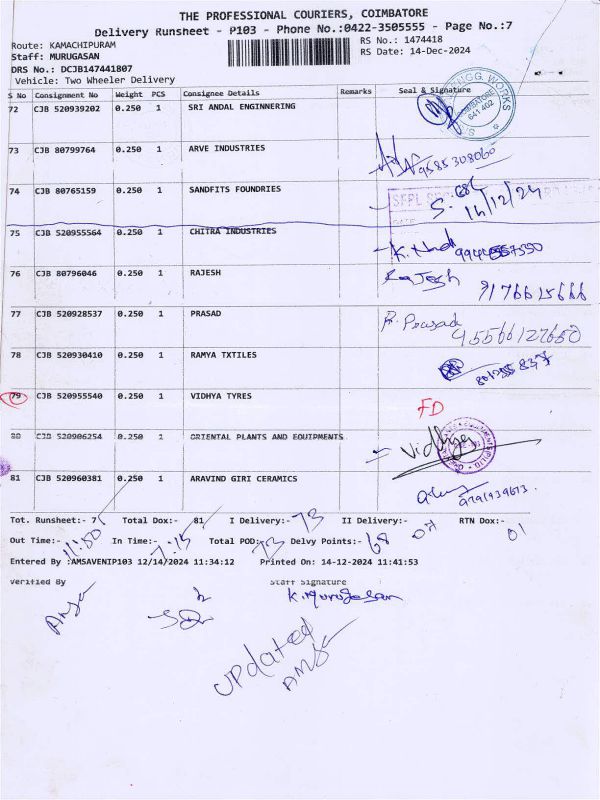 THE PROFESSIONAL COURIERS, COIMBATORE
Delivery Runsheet - P103 - Phone No.:0422-3505555 - Page No.:7
Route: KAMACHIPURAM
RS No.: 1474418
Staff: MURUGASAN
RS Date: 14-Dec-2024
DRS No.: DCJB147441807
Vehicle: Two Wheeler Delivery
S No Consignment No Weight PCS Consignee Details Remarks Seal & Signature
72 CJB 520939202 0.250 1 SRI ANDAL ENGINNERING
641 402
73 CJB 80799764 0.250 1 ARVE INDUSTRIES
9585308060
74 CJB 80765159 0.250 1 SANDFITS FOUNDRIES
14/12/24
75 CJB 520955564 0.250 1 CHITRA INDUSTRIES
76 CJB 80796046 0.250 1 RAJESH Rajesh
77 CJB 520928537 0.250 1 PRASAD R. Prasad
78 CJB 520930410 0.250 1 RAMYA TXTILES
79 CJB 520955540 0.250 1 VIDHYA TYRES FD
80 CJB 520906254 0.250 1 ORIENTAL PLANTS AND EQUIPMENTS Vidhya
81 CJB 520960381 0.250 1 ARAVIND GIRI CERAMICS
Tot. Runsheet:- 7 Total Dox:- 81 I Delivery:- 73 II Delivery:- RTN Dox:- 01
Out Time:- 11:50 In Time:- 7:15 Total POD: 73 Delvy Points:- 68 07
Entered By :AMSAVENIP103 12/14/2024 11:34:12 Printed On: 14-12-2024 11:41:53
Verified By Staff Signature
K.Murugesan
Updated